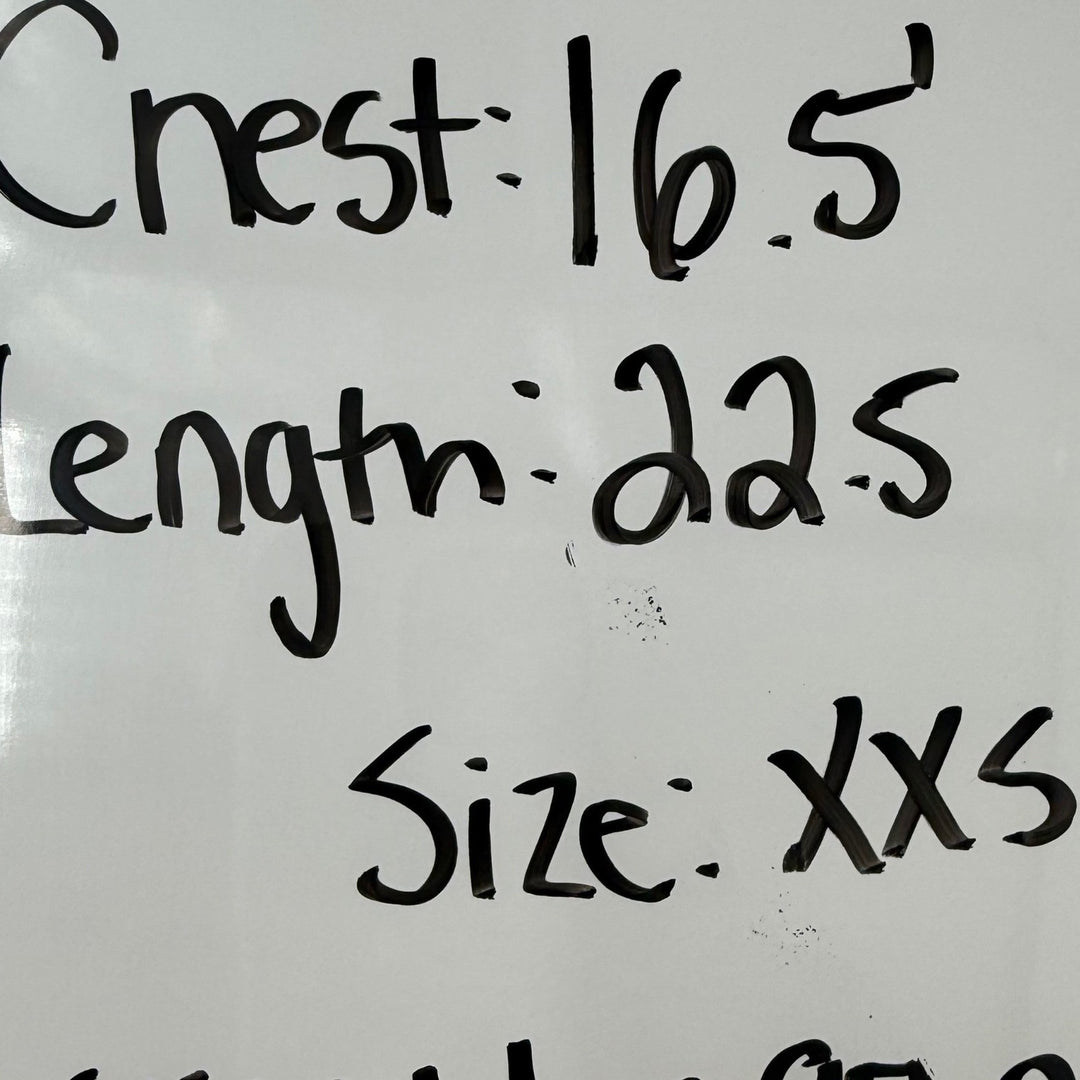 Chest: 16.5'
Length: 22.5
Size: XXS